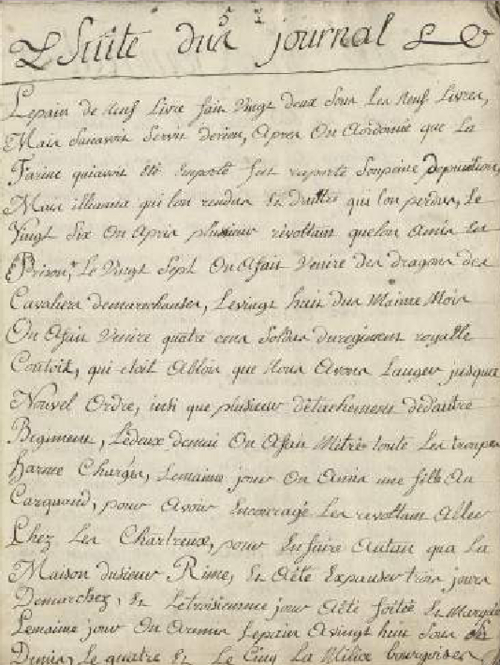 Suite du 5 journal
Lepain de neuf Livre fait vingt deux Sous Les neuf Livres,
Mais Sanavoir Servis derien, Apres On Aordonné que La
Farine quiavoit été emporté fut raporté Souspeine depunition,
Mais illianna qui lon rendus Et dautres qui lon perdus, Le
Vingt Six On Apris plusieur revoltain quelon Amis En
Prison, Le Vingt Sept On Afait Venire des dragons des
Cavaliers demarechaussé, Levingt huit dus Maime Mois
On Afait Venire quatre cens Soldas duregiment royalle
Contois, qui etoit ABlois que Nous Avons Lauger jusqua
Nouvel Ordre, insi que plusieur détachement dedautre
Regiment, Ledeux demai On Afait Mettre toute Les troupes
harmé Charger, Lemaime jour On Amis une fille Au
Carquand, pour Avoir Encouragé Les revoltain Aller
Chez Les Chartreux, pour Enfaire Autan qua La
Maison dusieur Rime, Et Aété Expauser trois jours
Demarchez, Et Letroisiemme jour Aété foitée Et Marquée
Lemaime jour On Aremis Lepain Avingt huit Sous
Demis, Le quatre Et Le Cinq La Milice bourgoise